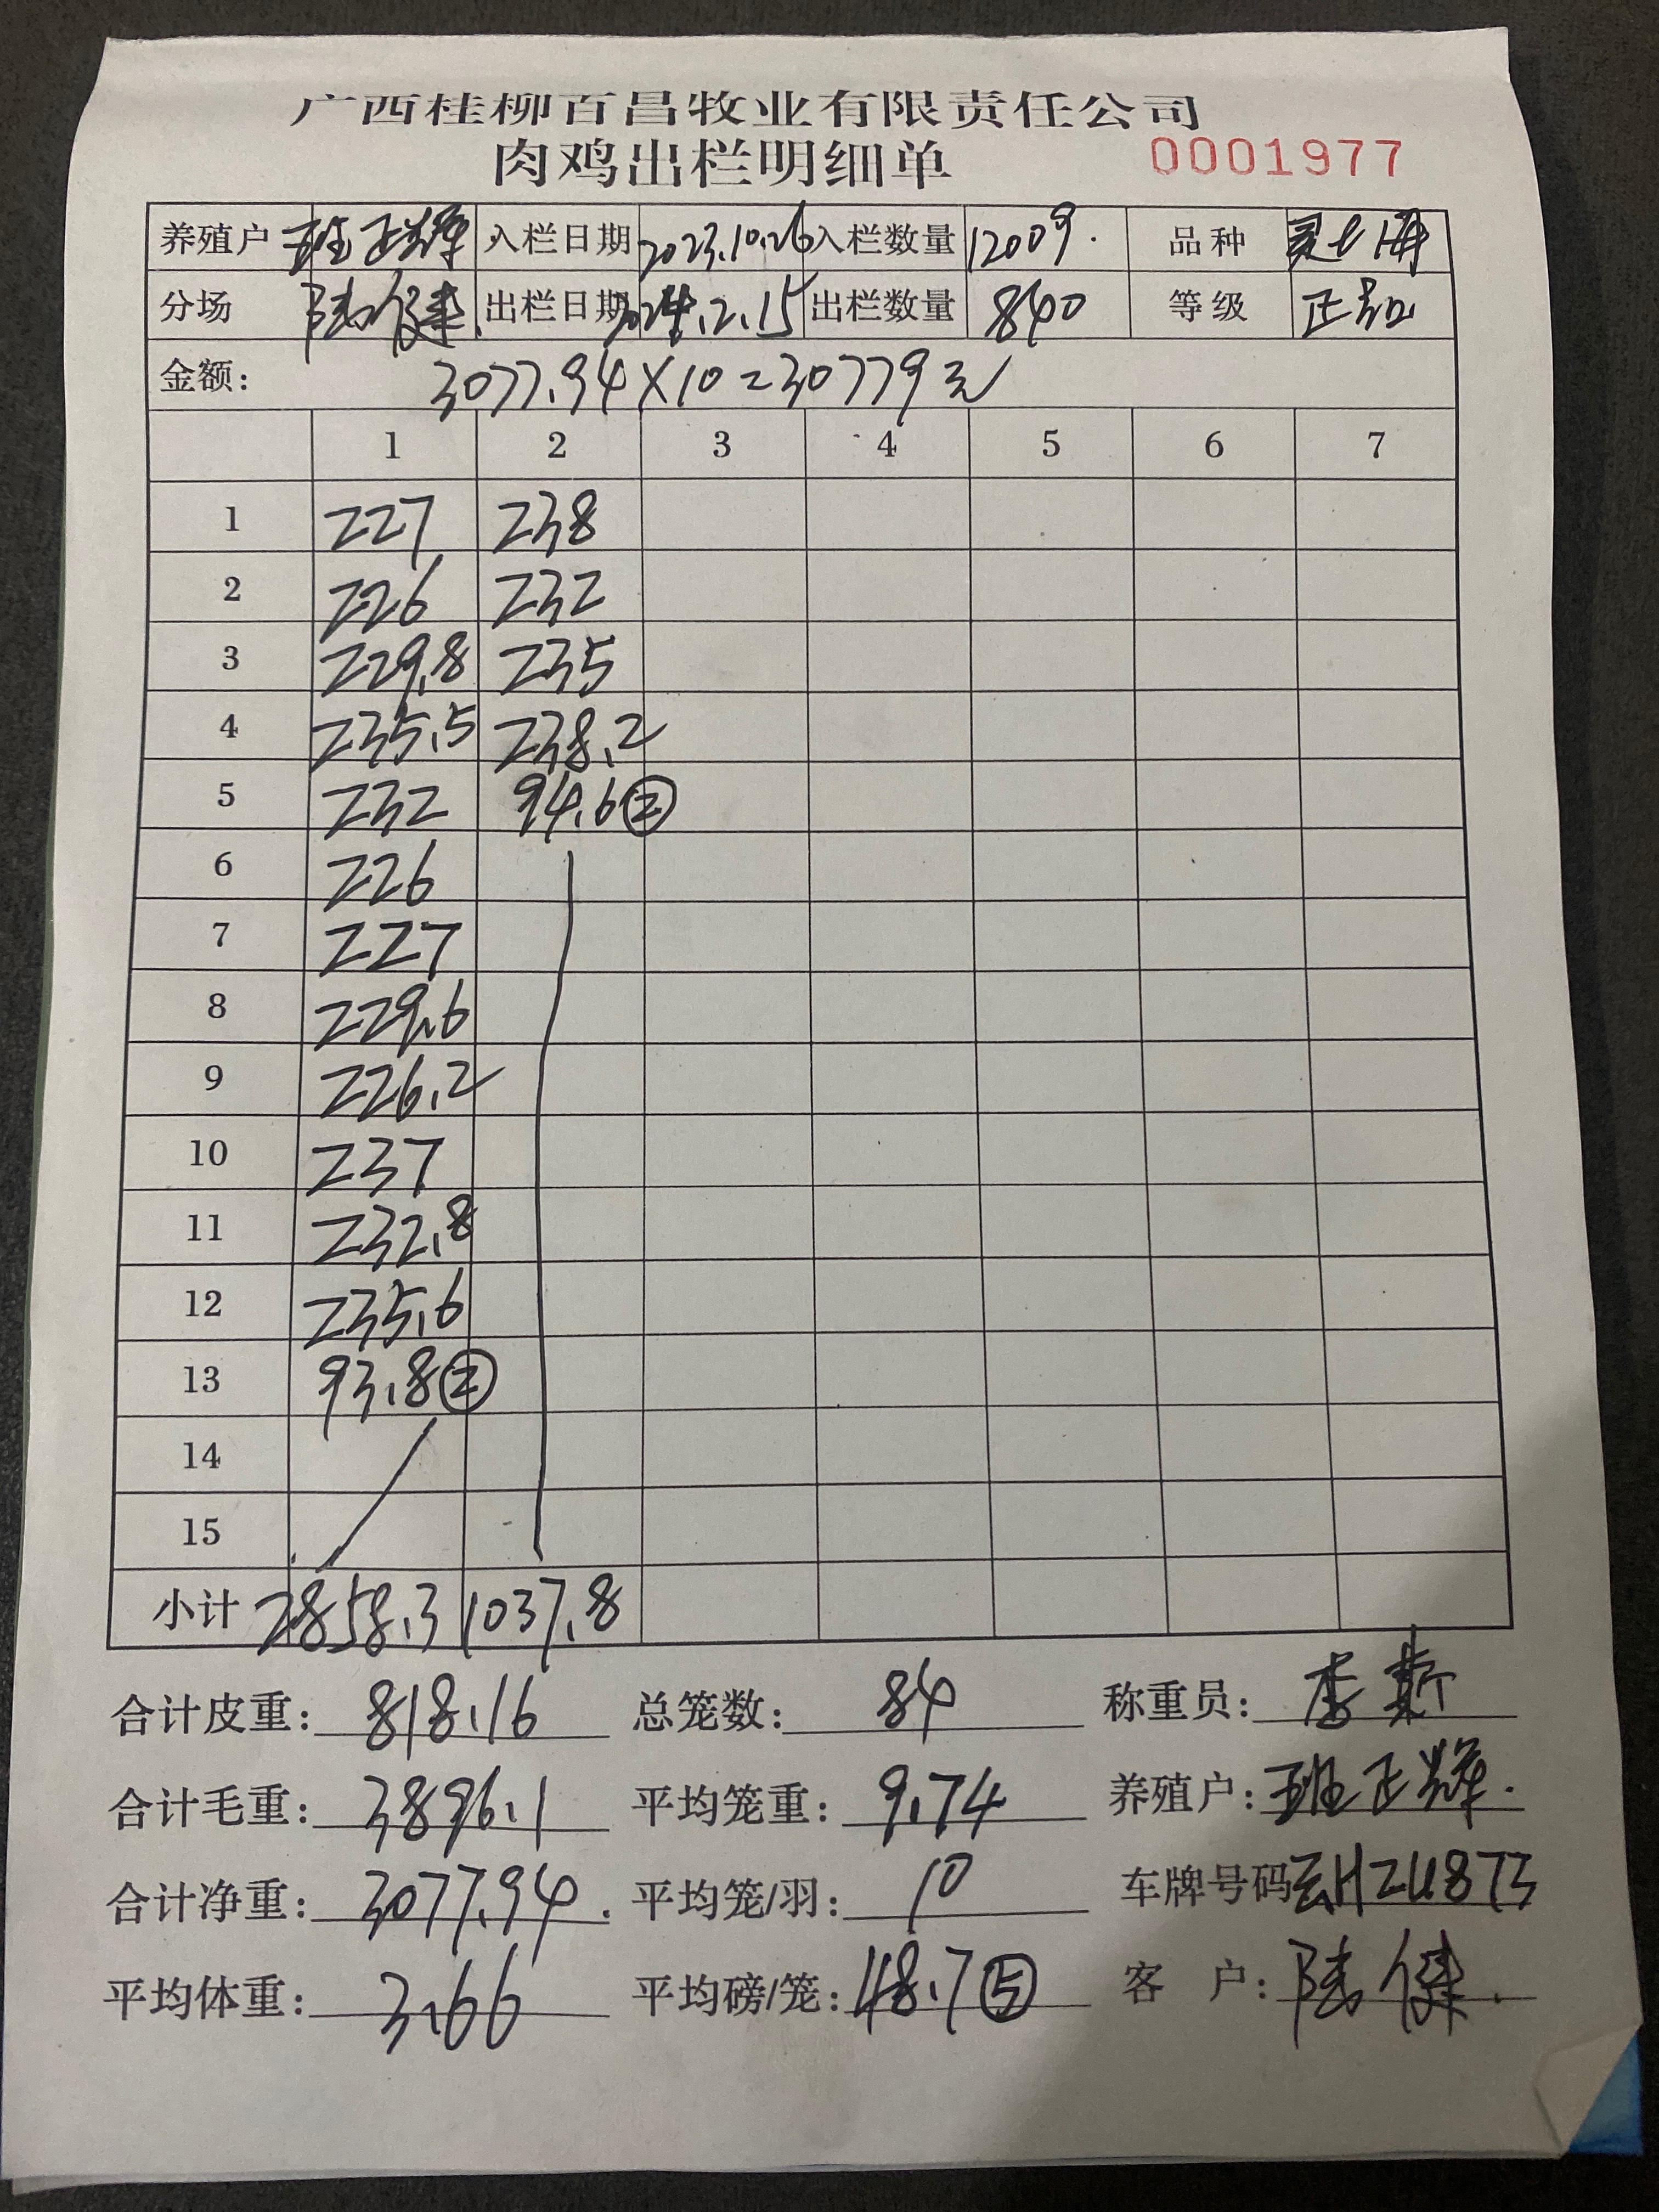 广西桂柳百昌牧业有限责任公司
肉鸡出栏明细单 0001977
养殖户 班正辉 入栏日期 2023.10.26 入栏数量 12009. 品种
分场 陆健. 出栏日期 2024.2.15 出栏数量 840 等级 正品
金额: 3077.94×10=30779元
1 2 3 4 5 6 7
1 227 238
2 226 232
3 229.8 235
4 235.5 238.2
5 232 94.6②
6 226
7 227
8 229.6
9 226.2
10 237
11 232.8
12 235.6
13 93.8②
14
15
小计 2858.3 1037.8
合计皮重: 818.16 总笼数: 84 称重员: 李
合计毛重: 3896.1 平均笼重: 9.74 养殖户: 班正辉.
合计净重: 3077.94. 平均笼/羽: 10 车牌号码 云H2U873
平均体重: 3.66 平均磅/笼: 48.7⑤ 客户: 陆健.